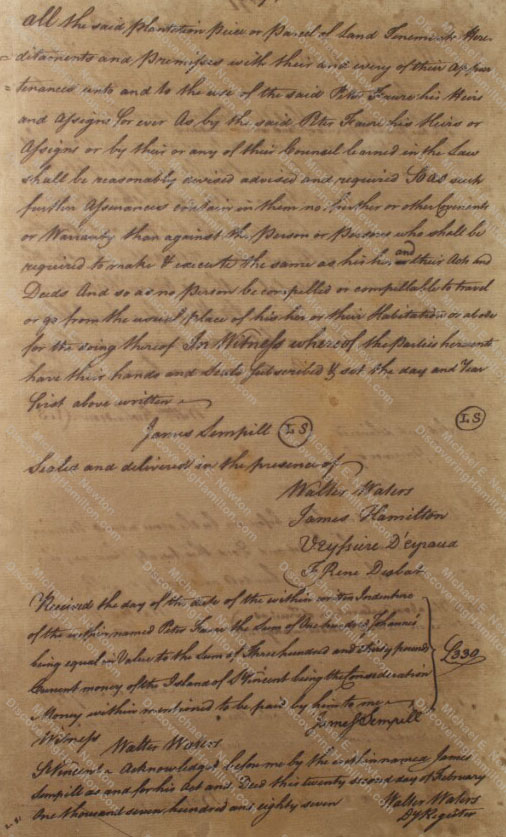 all the said Plantation Peice or Parcel of Land Tenements Here-
= ditaments and Premisses with their and every of their Appur
= tenances unto and to the use of the said Peter Faure his Heirs
and Assigns for ever As by the said Peter Faure his Heirs or
Assigns or by their or any of their Counsel learned in the Law
shall be reasonably devised advised and required So as such
further Assurances contain in them no further or other Covenants
or Warranty than against the Person or Persons who shall be
required to make & execute the same as his her and their Acts and
Deeds And so as no Person be compelled or compellable to travel
or go from the usual place of his her or their Habitation or abode
for the doing thereof In Witness whereof the Parties hereunto
have their hands and Seals Subscribed & set the day and Year
first above written
James Sempill LS LS
Sealed and delivered in the presence of
Walter Waters
James Hamilton
Veyssiere D'eyraud
F. Rene Desbat
Received the day of the date of the within written Indenture
of the within named Peter Faure the Sum of One hundred Johannes
being equal in Value to the Sum of Three hundred and thirty pounds
Current money of the Island of St Vincent being the Consideration
Money within mentioned to be paid by him to me £330
James Sempill
Witness
Walter Waters
St Vincent Acknowledged before me by the within named James
Sempill as and for his Act and Deed this twenty second day of February
One thousand seven hundred and eighty seven
Walter Waters
Dy Register
Michael E. Newton
DiscoveringHamilton.com